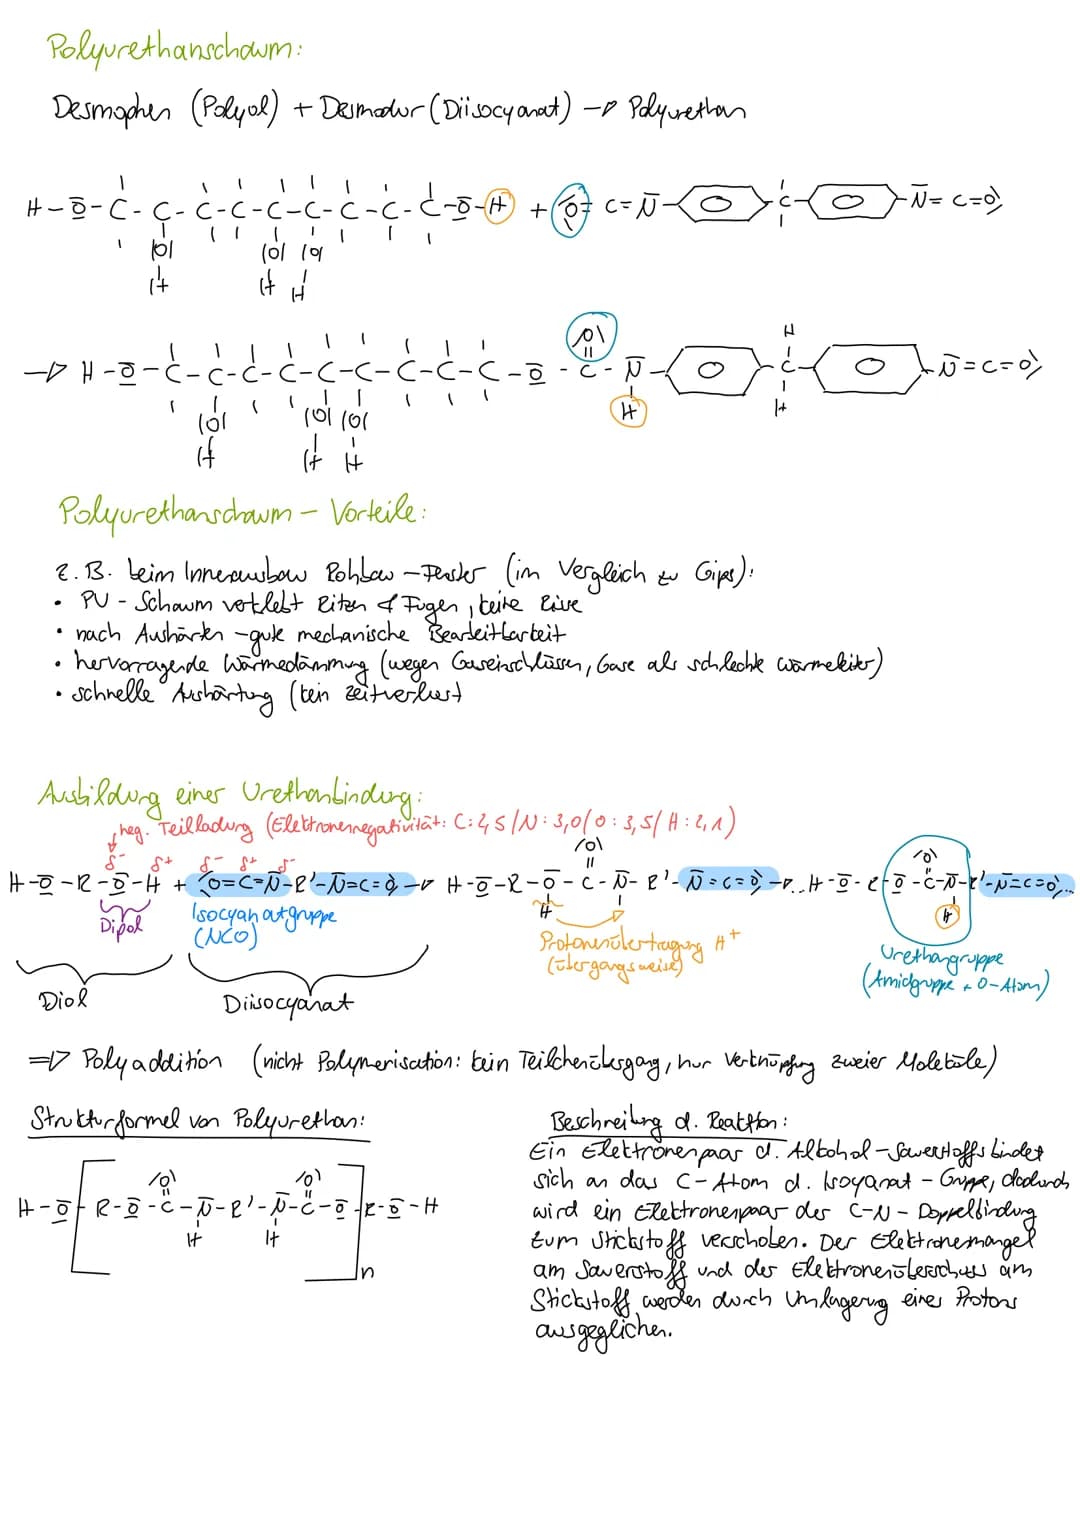 Polyurethanschaum:
Desmophen (Polyol) + Desmodur (Diisocyanat) → Polyurethan
H-O-C-C-C-C-C-C-C-C-C-O-H + O=C=N- -C- -N=C=O
|O| |O| |O|
H H H
O
→ H-O-C-C-C-C-C-C-C-C-C-O-C-N- -C- -N=C=O
H H H
|O| |O| |O|
H H H
Polyurethanschaum - Vorteile:
z.B. beim Innenausbau Rohbau-Fenster (im Vergleich zu Gips):
• PU-Schaum verklebt Ritzen & Fugen, keine Risse
• nach Aushärten - gute mechanische Bearbeitbarkeit
• hervorragende Wärmedämmung (wegen Gaseinschlüssen, Gase als schlechte Wärmeleiter)
• schnelle Aushärtung (kein Zeitverlust
Ausbildung einer Urethanbindung:
neg. Teilladung (Elektronennegativität: C:2,5/N:3,0/O:3,5/H:2,1)
δ- δ+ δ- δ+ δ- |O| |O|
H-O-R-O-H + O=C=N-R'-N=C=O → H-O-R-O-C-N-R'-N=C=O →..H-O-R-O-C-N-R'-N=C=O...
H H
Dipol Isocyanatgruppe
(NCO)
Protonenübertragung H+
(übergangsweise)
Urethangruppe
(Amidgruppe + O-Atom)
Diol Diisocyanat
⇒ Polyaddition (nicht Polymerisation: kein Teilchenübergang, nur Verknüpfung zweier Moleküle)
Strukturformel von Polyurethan:
|O| |O|
H-O-[R-O-C-N-R'-N-C-O-]R-O-H
H H
n
Beschreibung d. Reaktion:
Ein Elektronenpaar d. Alkohol-Sauerstoffs bindet
sich an das C-Atom d. Isoyanat-Gruppe, dadurch
wird ein Elektronenpaar der C-N-Doppelbindung
zum Stickstoff verschoben. Der Elektronenmangel
am Sauerstoff und der Elektronenüberschuss am
Stickstoff werden durch Umlagerung eines Protons
ausgeglichen.